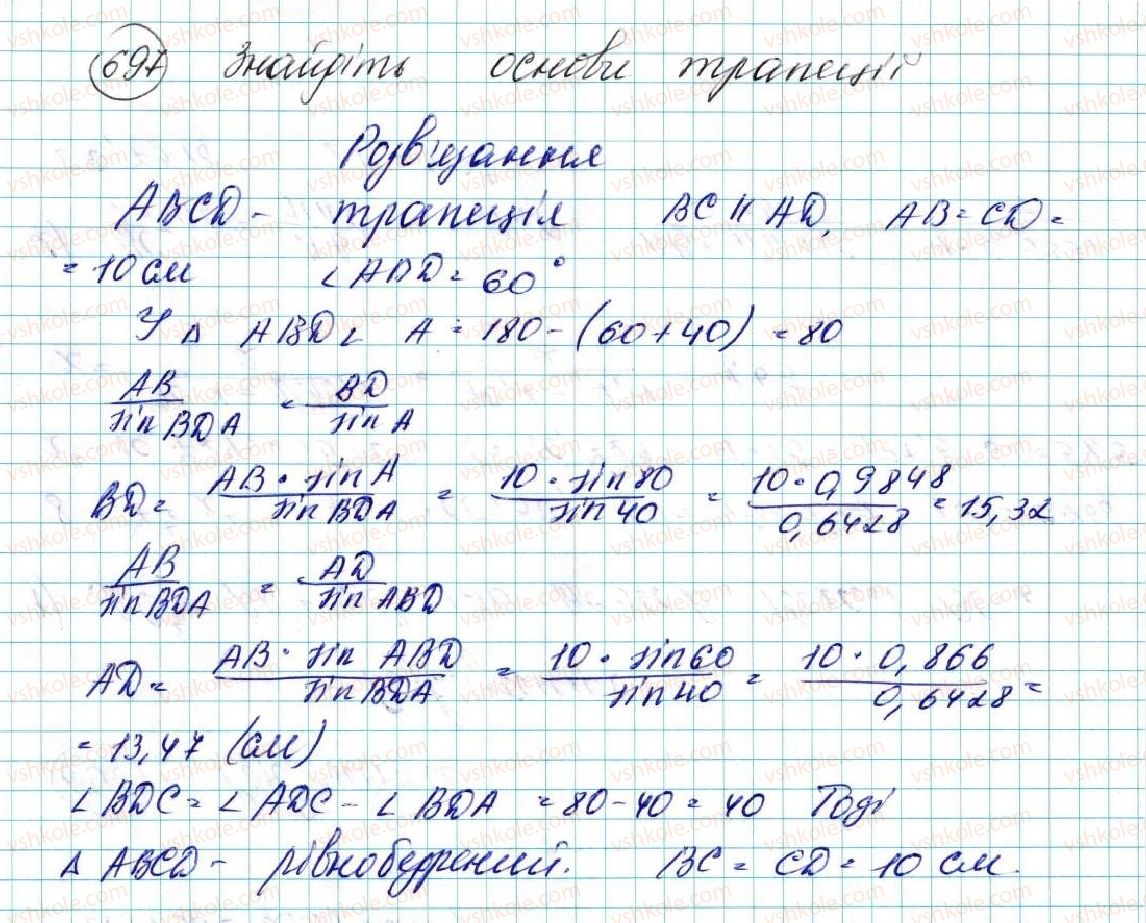 697 Знайдіть основи трапеції
Розв'язання
ABCD - трапеція BC || AD, AB = CD =
= 10 см ∠ABD = 60°
У Δ ABD ∠ A = 180 - (60 + 40) = 80
AB / sin BDA = BD / sin A
BD = AB · sin A / sin BDA = 10 · sin 80 / sin 40 = 10 · 0,9848 / 0,6428 = 15,32
AB / sin BDA = AD / sin ABD
AD = AB · sin ABD / sin BDA = 10 · sin 60 / sin 40 = 10 · 0,866 / 0,6428 =
= 13,47 (см)
∠ BDC = ∠ ADC - ∠ BDA = 80 - 40 = 40 Тоді
Δ ABCD - рівнобедрений. BC = CD = 10 см.
vshkole.com